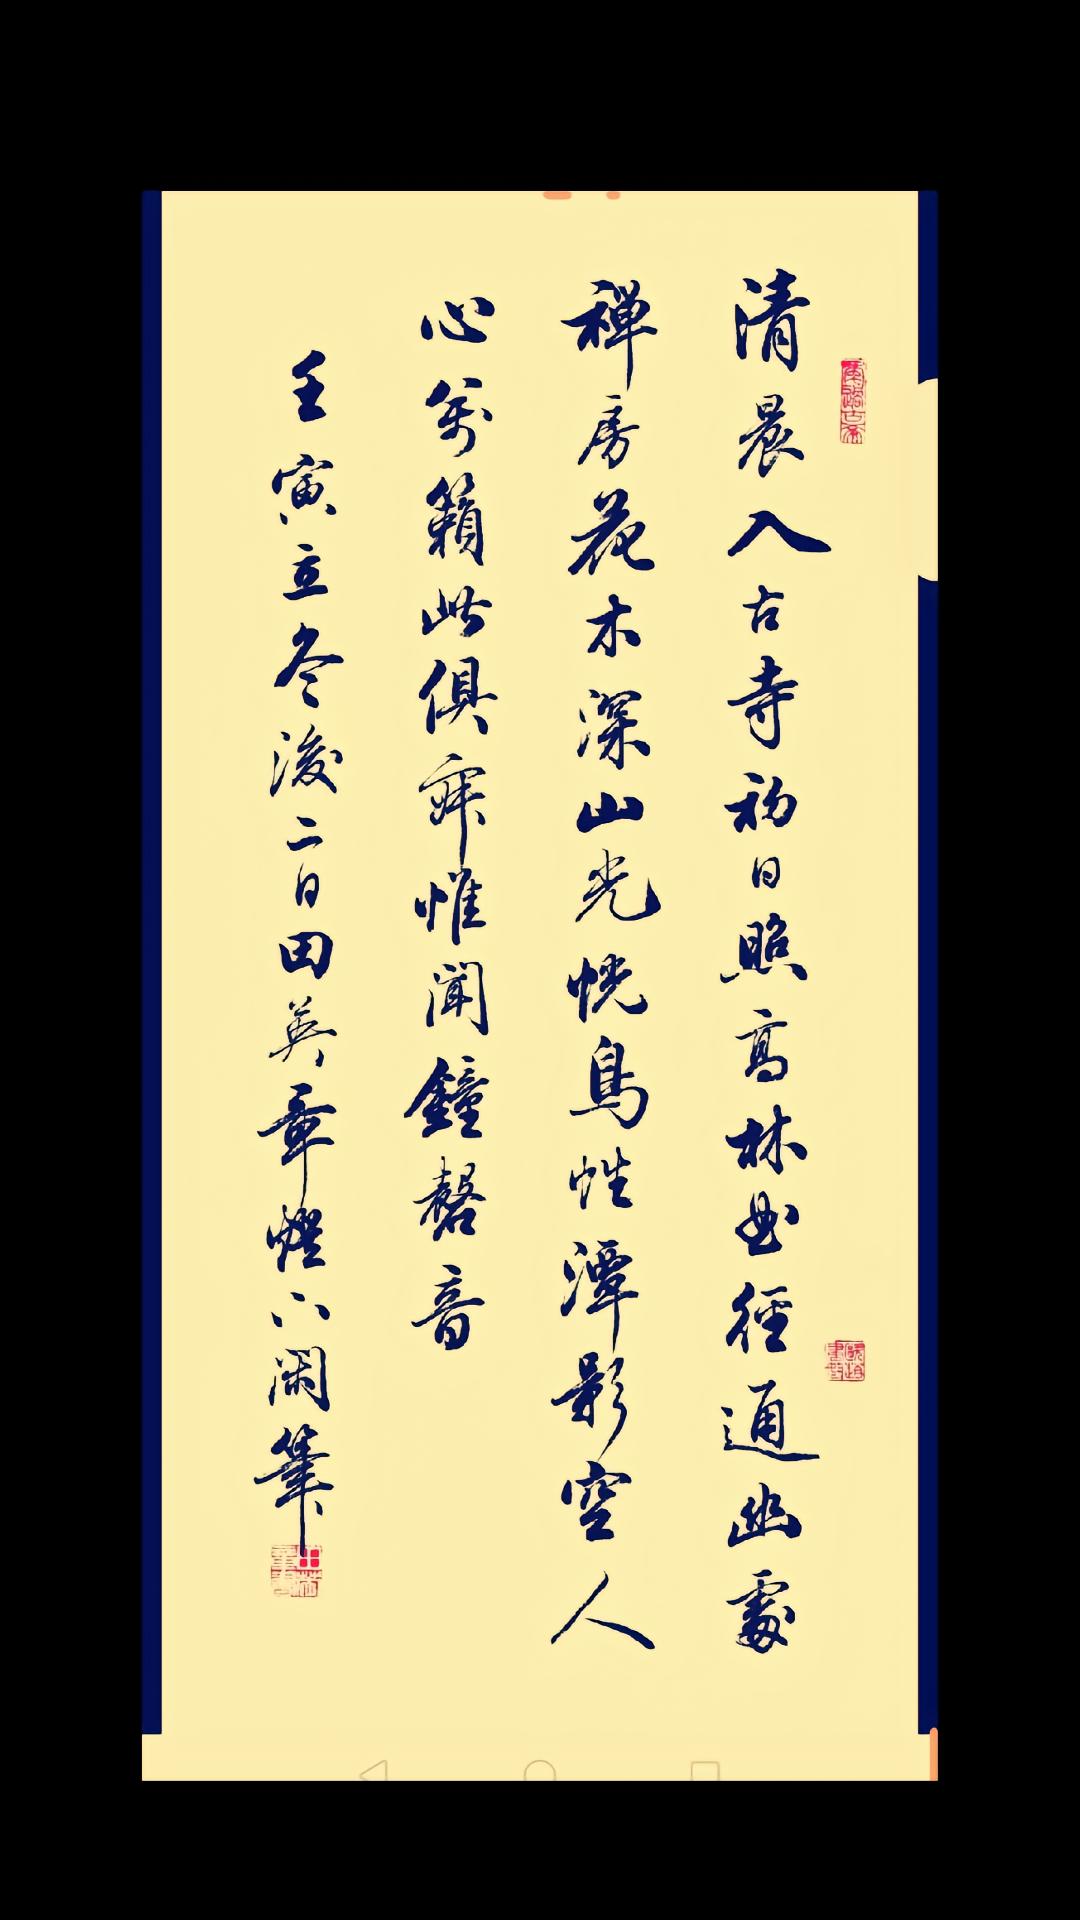 清晨入古寺初日照高林曲径通幽處
禅房花木深山光悦鳥性潭影空人
心萬籟此俱寂惟聞鐘磬音
壬寅立冬後二日田英章燈下閑筆